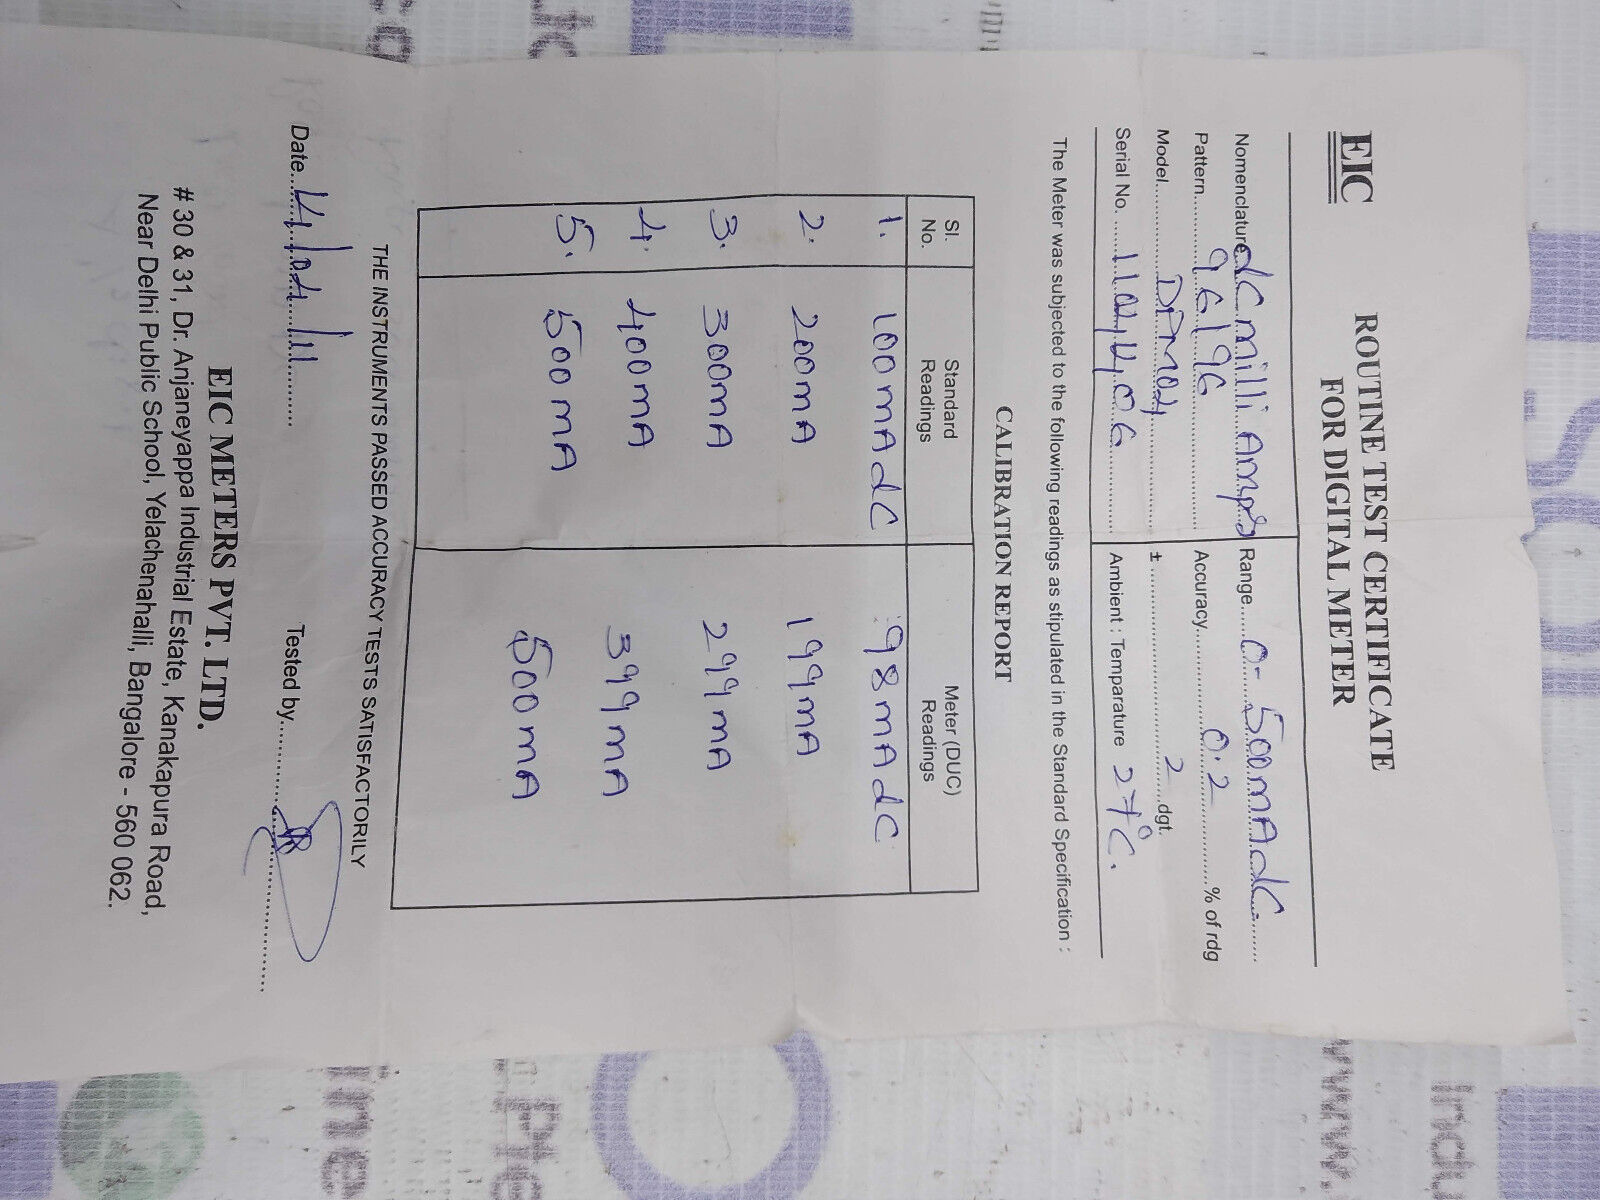 EIC
ROUTINE TEST CERTIFICATE
FOR DIGITAL METER
Nomenclature dC milli Amps Range.....0-500mAdC.....
Pattern.....96/96..... Accuracy.....0.2.....% of rdg
Model.....DPM04..... ±.....2.....dgt.
Serial No......1104406..... Ambient : Temparature 27°C.
The Meter was subjected to the following readings as stipulated in the Standard Specification :
CALIBRATION REPORT
Sl. No. Standard Readings Meter (DUC) Readings
1. 100mAdC 98mAdC
2. 200mA 199mA
3. 300mA 299mA
4. 400mA 399mA
5. 500mA 500mA
THE INSTRUMENTS PASSED ACCURACY TESTS SATISFACTORILY
Date.....4/04/11..... Tested by..........
EIC METERS PVT. LTD.
# 30 & 31, Dr. Anjaneyappa Industrial Estate, Kanakapura Road,
Near Delhi Public School, Yelachenahalli, Bangalore - 560 062.